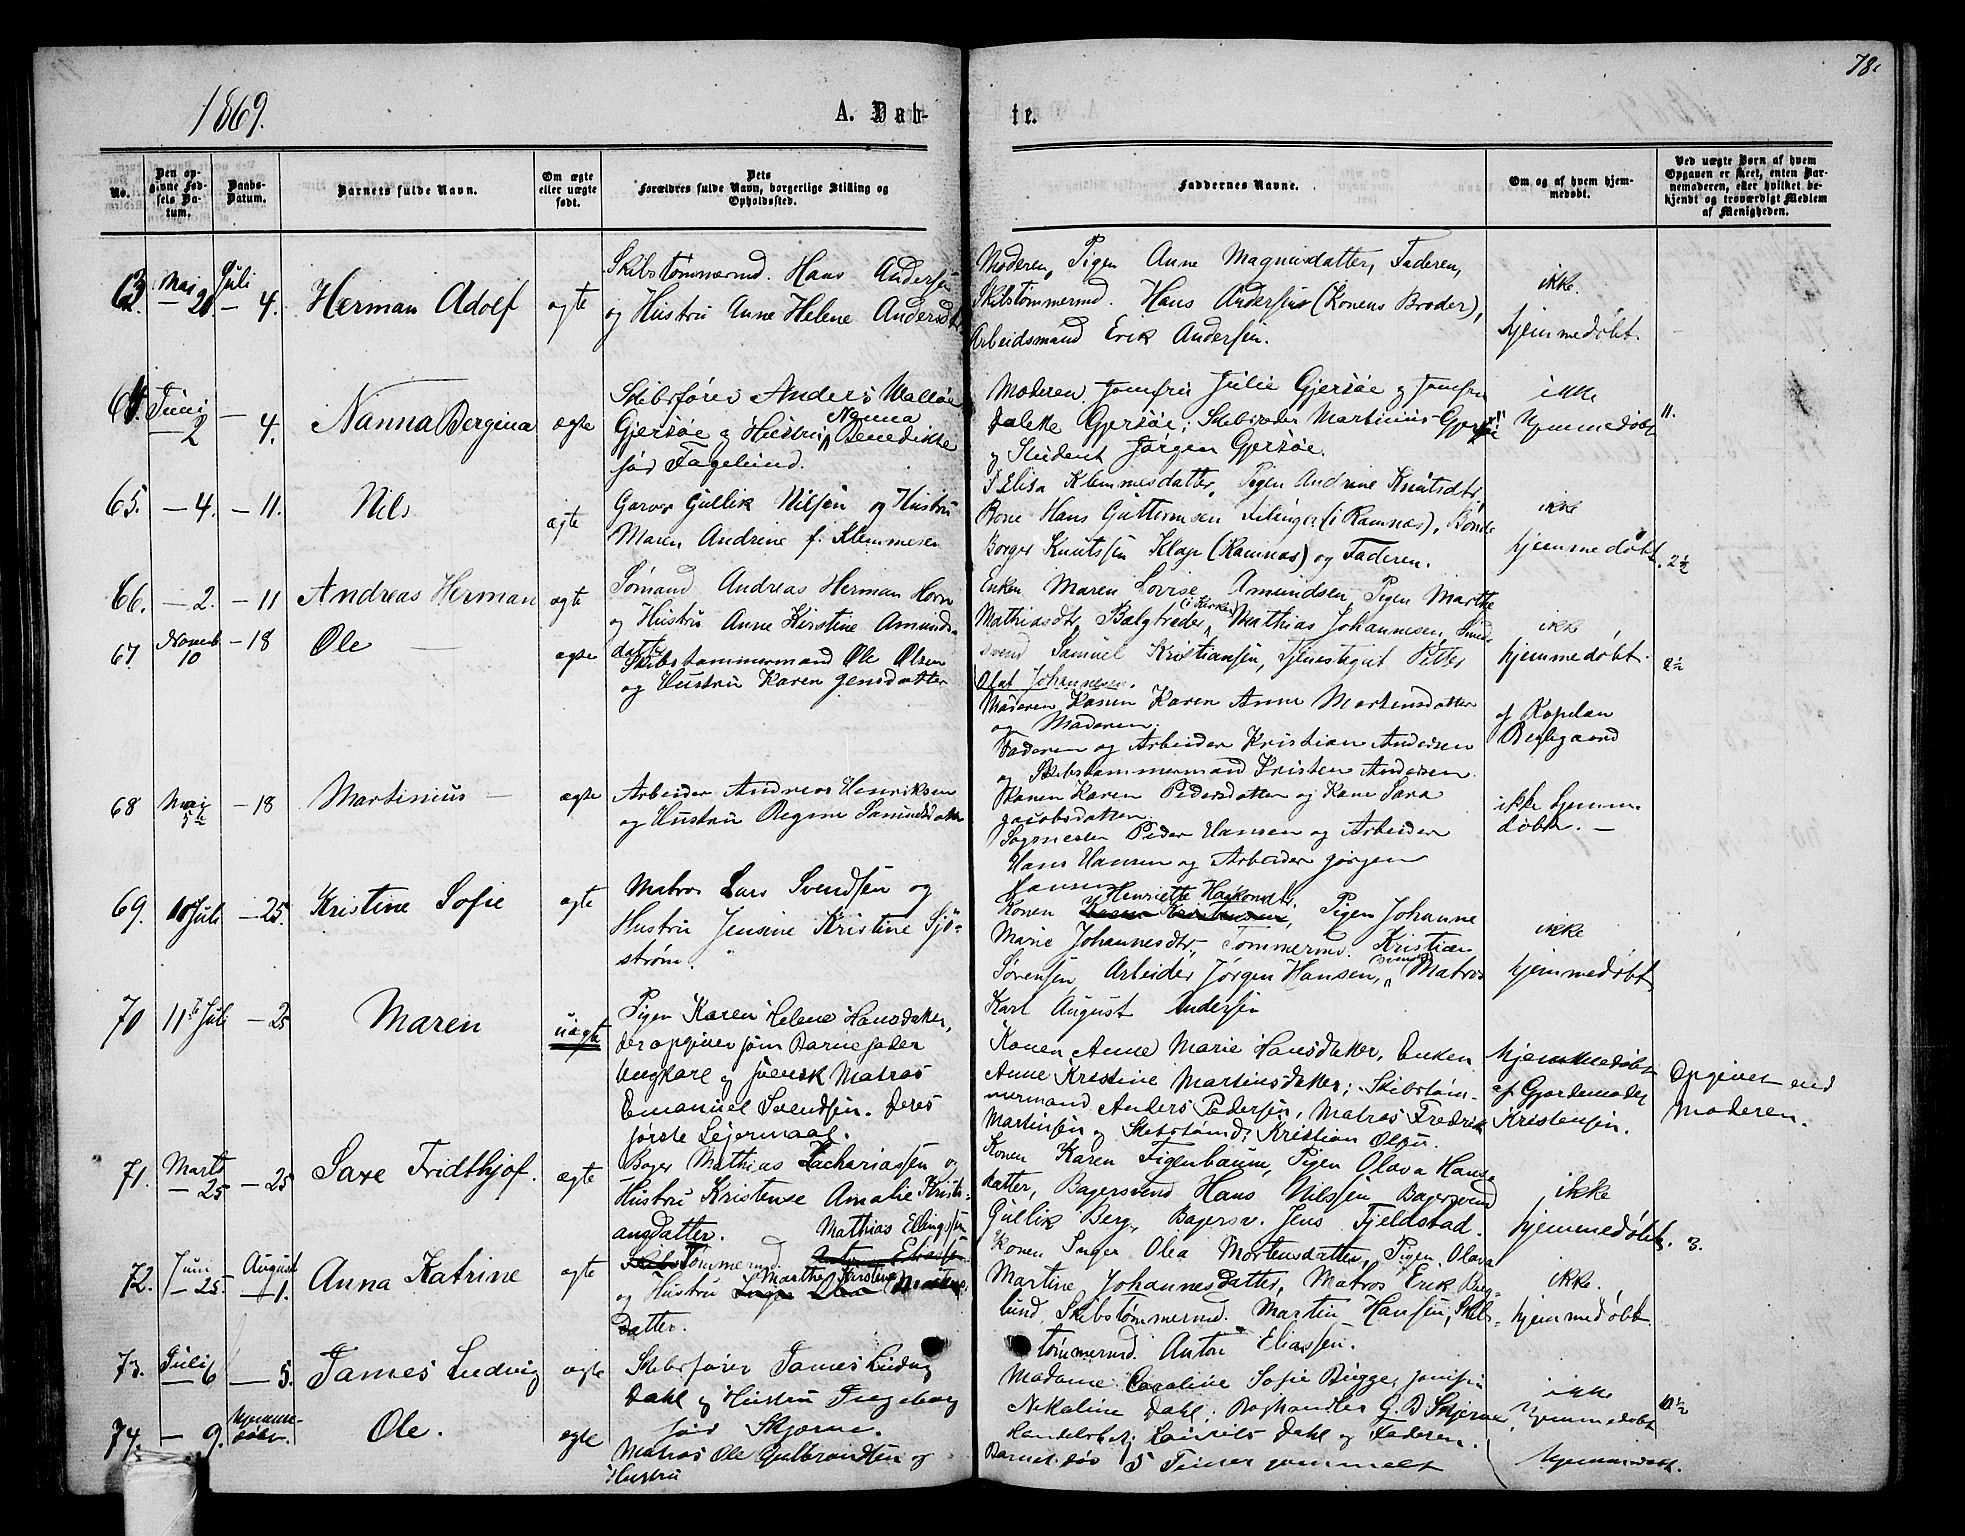 78.
1869.
A. Døb-
te.
No.
Den op-
givne Fød-
sels Da-
tum.
Daabs-
Datum.
Barnets fulde Navn.
Om ægte
eller uægte
født.
Dets
Forældres fulde Navn, borgerlige Stilling og
Opholdssted.
Faddernes Navne.
Om og af hvem hjem-
medøbt.
Ved uægte Børn af hvem
Opgaven er skeet, enten Bar-
nemoderen, eller hvilket be-
kjendt og troværdigt Medlem
af Menigheden.
63. Mai
Juli
— 4. Herman Adolf
ægte
Skibstømmermd. Hans Andersen
og Hustru Anne Helene Andersdt.
Moderen, Pigen Anne Magnusdatter, Faderen,
Skibstømmermd. Hans Andersen (Konens Broder),
Arbeidsmand Erik Andersen.
ikke
hjemmedøbt.
64. Juni
2 — 4. Nanna Bergina
ægte
Skibsfører Anders Walløe
Gjersøe og Hustru Nanna Benedikte
fød Fagelund.
Moderen, Jomfru Julie Gjersøe og Jomfru
Dalcke Gjersøe; Skibsreder Martinius Gjersøe
og Student Jørgen Gjersøe.
ikke
hjemmedøbt
11.
65. — 4. — 11. Nils
ægte
Garver Gullik Nilsen og Hustru
Maren Andrine f. Klemmesen
Elisa Klemmesdatter, Pigen Andrine Knutsdtr,
Bone Hans Guttormsen (i Ramnæs), Bonde
Borger Knutssen Klop (Ramnæs) og Faderen.
ikke
hjemmedøbt. 2½
66. — 2. — 11 Andreas Herman
ægte
Sømand Andreas Herman Horn
og Hustru Anne Kirstine Amunds-
datter
Enken Maren Lovise Amundsen, Pigen Marthe
Mathiasdtr, Mathias Johannesen, Smed-
svend Samuel Kristiansen, Tjenestegut Petter
Olaf Johannesen.
ikke
hjemmedøbt. 2½
67 Novemb
10 — 18 Ole
ægte
Skibstømmermand Ole Olsen
og Hustru Karen Jensdatter
Moderen Konen Karen Anne Mortensdatter
og Moderen.
Faderen og Arbeider Kristian Andersen
og Skibstømmermand Kristen Andersen.
af Kapelan
Beglegaard
68 Mai
5te — 18 Martinius —
ægte
Arbeider Andreas Henriksen
og Hustru Regine Samuelsdatter
Konen Karen Pedersdatter og Kone Sara
Jacobsdatter.
Sogmester Peder Hansen og Arbeider
Hans Hansen og Arbeider Jørgen
Hansen
ikke hjemme-
døbt. —
69. 10 Juli — 25. Kristine Sofie
ægte
Matros Lars Svendsen og
Hustru Jensine Kristine Sjö-
strøm.
Konen Henriette Haakonsdt. Pigen Johanne
Marie Johannesdtr, Tømmermd. Kristian
Sørensen, Arbeider Jørgen Hansen, Matros
Karl August Andersen
ikke
hjemmedøbt
70 11te Juli — 25 Maren
uægte
Pigen Karen Helene Hansdatter,
der opgiver som Barnefader
Ungkarl og svensk Matros
Emanuel Svendsen. Deres
første Leiermaal.
Konen Anne Marie Hansdatter, Enken
Anne Kristine Martinsdatter; Skibstøm-
mermand Anders Pedersen, Matros Fredrik
Martinsen og Skibstømd. Kristian Olsen.
Hjemmedøbt
af Gjordemoder
Kristensen.
Opgivet ved
Moderen.
71. Marts
— 25 — 25 Saxe Fridthjof.
ægte
Bager Mathias Zachariassen og
Hustru Kristense Amalie Kristi-
ansdatter.
Konen Karen Figenbaum, Pigen Olava Hans-
datter, Bagersvend Hans Nilssen, Bagersvend
Gullik Berg, Bagersv. Jens Fjeldstad.
ikke
hjemmedøbt. 3.
72. Juni
— 25. August
1. Anna Katrine
ægte
Mathias Ellingssen
Skibstømmermd. Anton Eliassen
Marthe Kirstine
og Hustru Inger Olea Mortens-
datter.
Konen Inger Olea Mortensdatter, Pigen Olava
Martine Johannesdatter, Matros Erik Berg-
lund, Skibstømmermd. Martin Hansen, Skibs-
tømmermd. Anton Eliassen.
ikke.
hjemmedøbt
73. Juli
— 6 — 5. James Ludvig
ægte
Skibsfører James Ludvig
Dahl og Hustru Ingeborg
fød Skjerne.
Madame Caroline Sofie Bugge, Jomfru
Nikoline Dahl; Boghandler G. B Skjerne
Handelsbetj. Laurits Dahl og Faderen.
ikke
hjemmedøbt
10½
74. — 9. Hjemme-
døbt. Ole.
ægte
Matros Ole Gulbrandsen og
Hustru
Barnet døs 5 Timer gammelt
Hjemmedøbt.